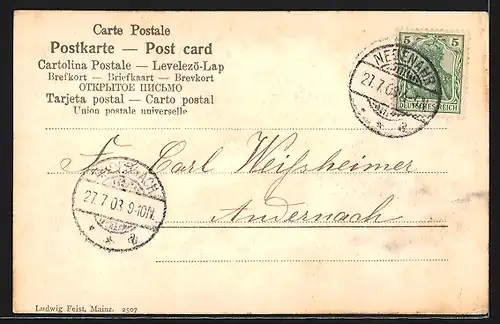 Carte Postale
Postkarte — Post card
Cartolina Postale — Levelező-Lap
Brefkort — Briefkaart — Brevkort
ОТКРЫТОЕ ПИСЬМО
Tarjeta postal — Carto postal
Union postale universelle
5 5
DEUTSCHES REICH
27.7.03
Carl Weißheimer
Andernach
27.7.03 9-10N.
Ludwig Feist, Mainz. 2507